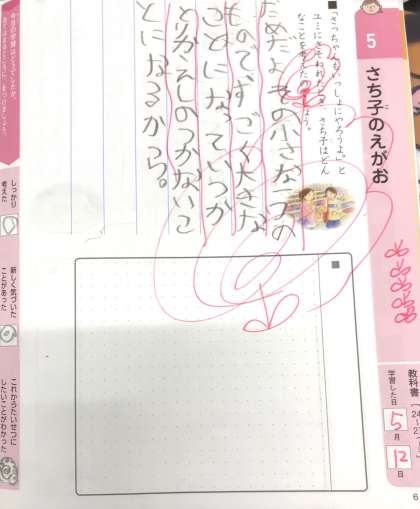 5
さち子のえがお
教科書
24
学習した日
5月
12日
■「さっちゃんもいっしょにやろうよ。」と
ユミにさそわれたとき、さち子はどん
なことを考えたのでしょう。
だめだよその小さな一つの
ものですごく大きな
ことになっていつか
とりかえしのつかないこ
とになるから。
■
今日の学習はどうでしたか。
しっかり
考えた
新しく気づいた
ことがあった
これからたいせつに
したいことがわかった
6